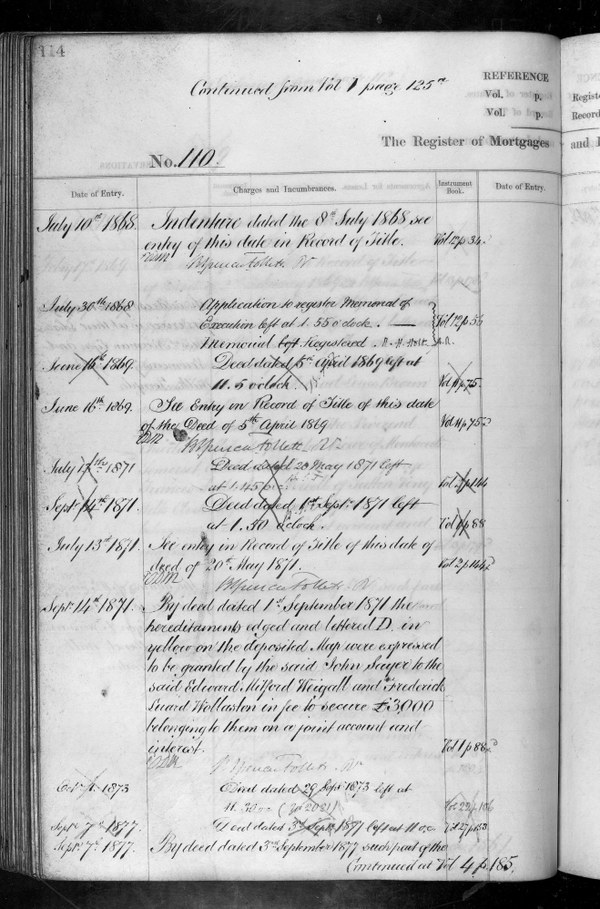 114
Continued from Vol 1 page 125
REFERENCE
Vol. p.
Vol. p.
The Register of Mortgages
and
Registe
Record
No. 110.
Date of Entry.
Charges and Incumbrances.
Instrument Book.
Date of Entry.
July 10th 1868. Indenture dated the 8th July 1868 see
entry of this date in Record of Title. Vol 12 p 34.
BSpencer Follett. Rr
July 30th 1868 Application to register Memorial of
Execution left at 1.55 o'clock. Vol 12 p 55
Memorial Registered. R.H. Holt A.R.
16th 1869. Deed dated 5th April 1869 left at
11.5 o'clock. Vol 11 p 75.
June 16th 1869. See Entry in Record of Title of this date
of the Deed of 5th April 1869 Vol 11 p 75
BSpencer Follett Rr.
July 1871 Deed dated 20 May 1871 left
at 1.45 Vol 2 p 144
Sept. 14th 1871. Deed dated 1st Septr 1871 left
at 1.30 o'clock. Vol 1 p 88
July 13th 1871. See entry in Record of Title of this date of
deed of 20th May 1871. Vol 2 p 144
BSpencer Follett Rr
Sept. 14th 1871. By deed dated 1st September 1871 the
hereditaments edged and lettered D. in
yellow on the deposited Map were expressed
to be granted by the said John Sayer to the
said Edward Mitford Weigall and Frederick
Luard Wollaston in fee to secure £3,000
belonging to them on a joint account and
interest. Vol 1 p 88
BSpencer Follett. Rr
Octr 1873 Deed dated 29 Sept 1873 left at
11.30 Vol 22 p 106
Sept. 7th 1877. Deed dated 3rd Septr 1877 left at 11 Vol 27 p 153
Sept. 7th 1877. By deed dated 3rd September 1877 such part of the
Continued at Vol 4 p 185.